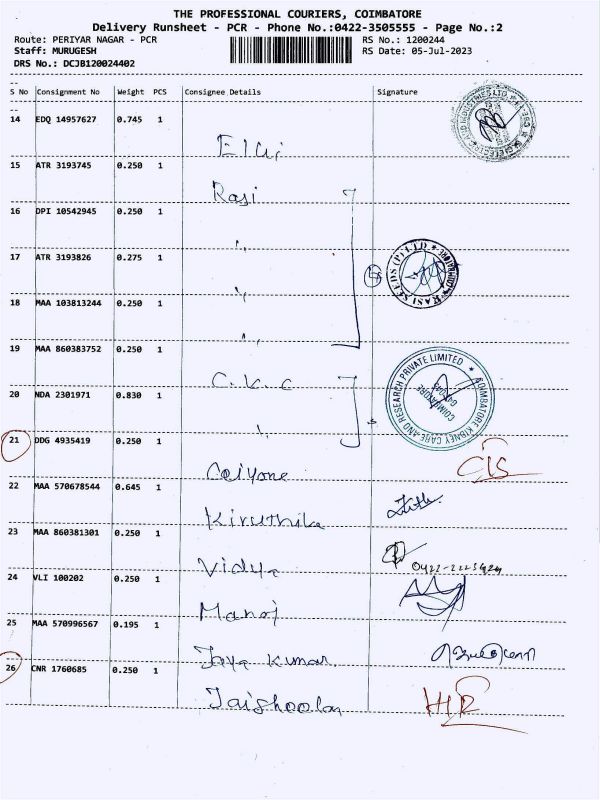 THE PROFESSIONAL COURIERS, COIMBATORE
Delivery Runsheet - PCR - Phone No.:0422-3505555 - Page No.:2
Route: PERIYAR NAGAR - PCR
RS No.: 1200244
Staff: MURUGESH
RS Date: 05-Jul-2023
DRS No.: DCJB120024402
S No Consignment No Weight PCS Consignee Details Signature
14 EDQ 14957627 0.745 1
15 ATR 3193745 0.250 1
Rasi
16 DPI 10542945 0.250 1
"
17 ATR 3193826 0.275 1
"
RASI SEEDS (P) LTD
18 MAA 103813244 0.250 1
"
19 MAA 860383752 0.250 1
C.K.C
COIMBATORE KIDNEY CARE AND RESEARCH PRIVATE LIMITED
COIMBATORE
20 NDA 2301971 0.830 1
"
21 DDG 4935419 0.250 1
CIS
22 MAA 570678544 0.645 1
Kiruthika
23 MAA 860381301 0.250 1
Vidya
24 VLI 100202 0.250 1
Manoj
25 MAA 570996567 0.195 1
Jaya Kumar
26 CNR 1760685 0.250 1